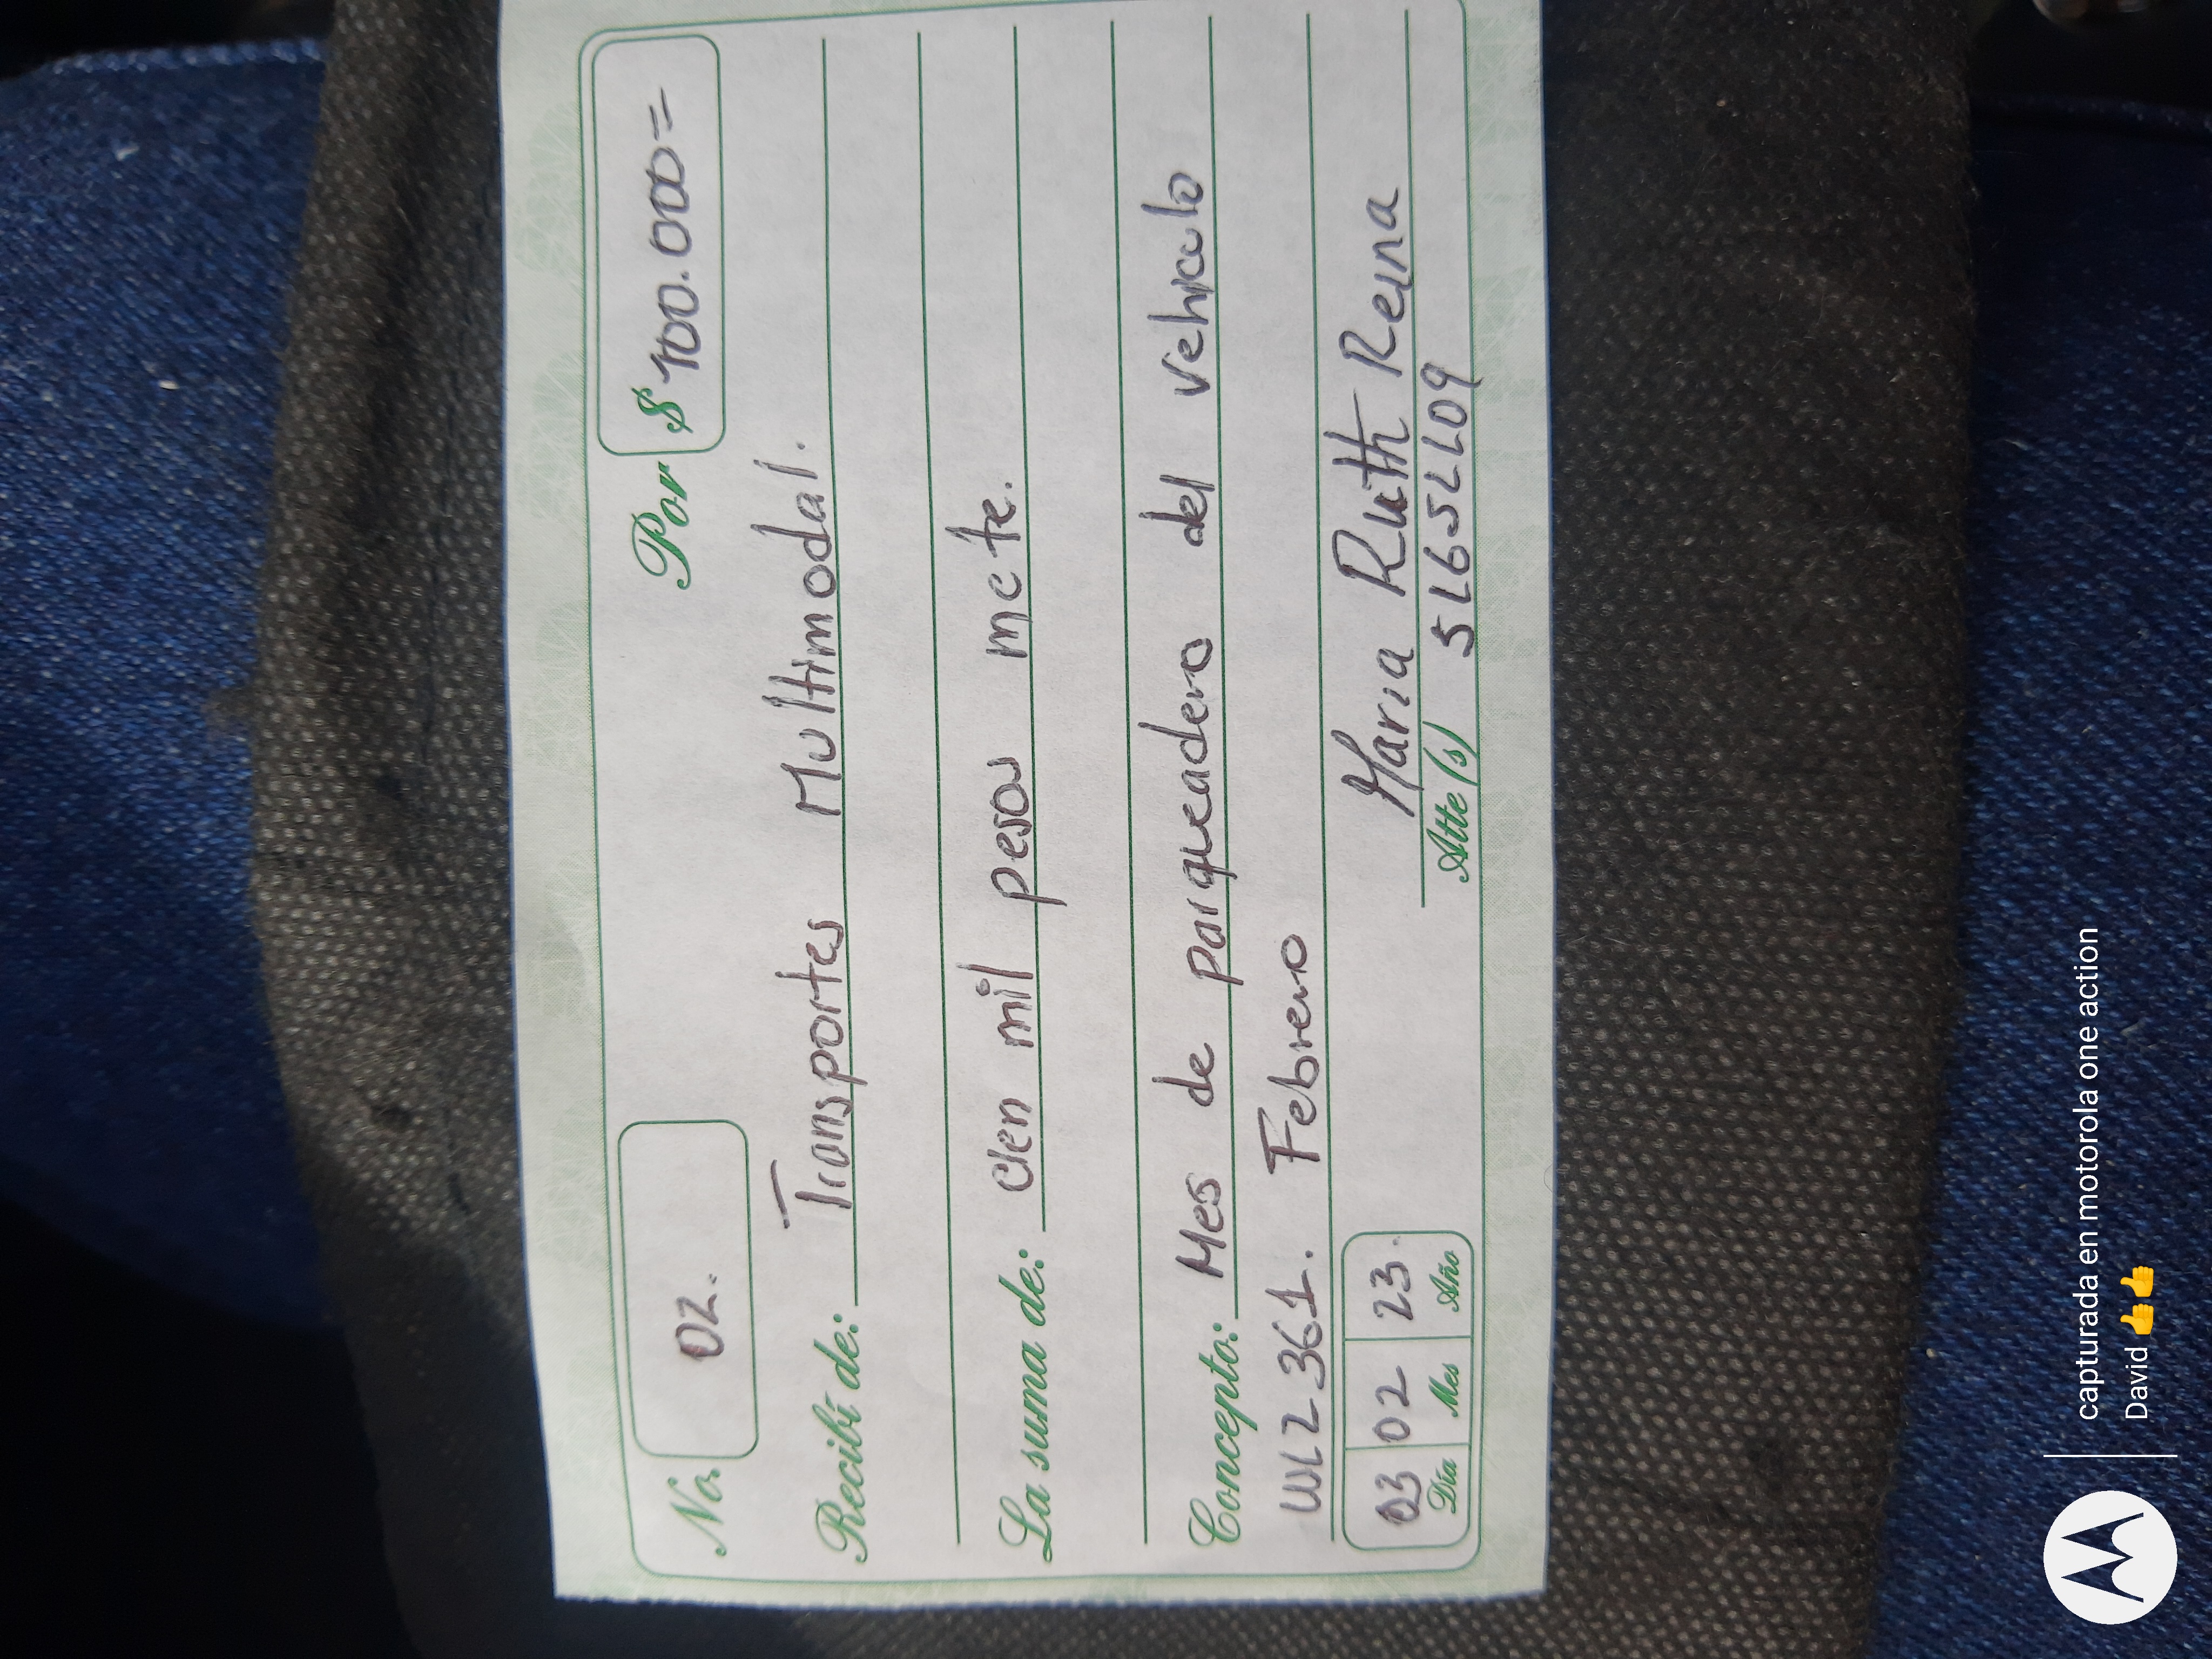 No. 02. Por $ 100.000=
Recibí de: Transportes Multimodal.
La suma de: Cien mil pesos mcte.
Concepto: Mes de parqueadero del vehiculo
WLZ361. Febrero
Maria Ruth Reina
03 02 23.
Día Mes Año
Atte (s) 51652209
capturada en motorola one action
David 👍👍